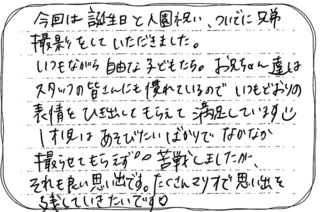 今回は誕生日と入園祝い、ついでに兄弟
撮影をしていただきました。
いつもながら自由な子どもたち。お兄ちゃん達は
スタッフの皆さんにも慣れているので いつもどおりの
表情をひき出してもらえて満足しています
1才児はあそびたいばかりで なかなか
撮らせてもらえず 苦戦しましたが、
それも良い思い出です。たくさんマリオで思い出を
残していきたいです♡